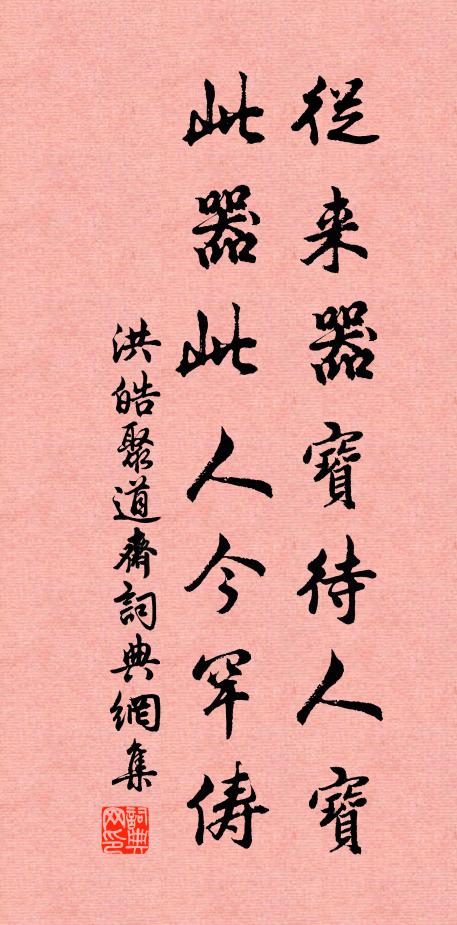 從来器寶待人寶
此器此人今罕儔
洪皓聚道齋詞典網集
詞典网印